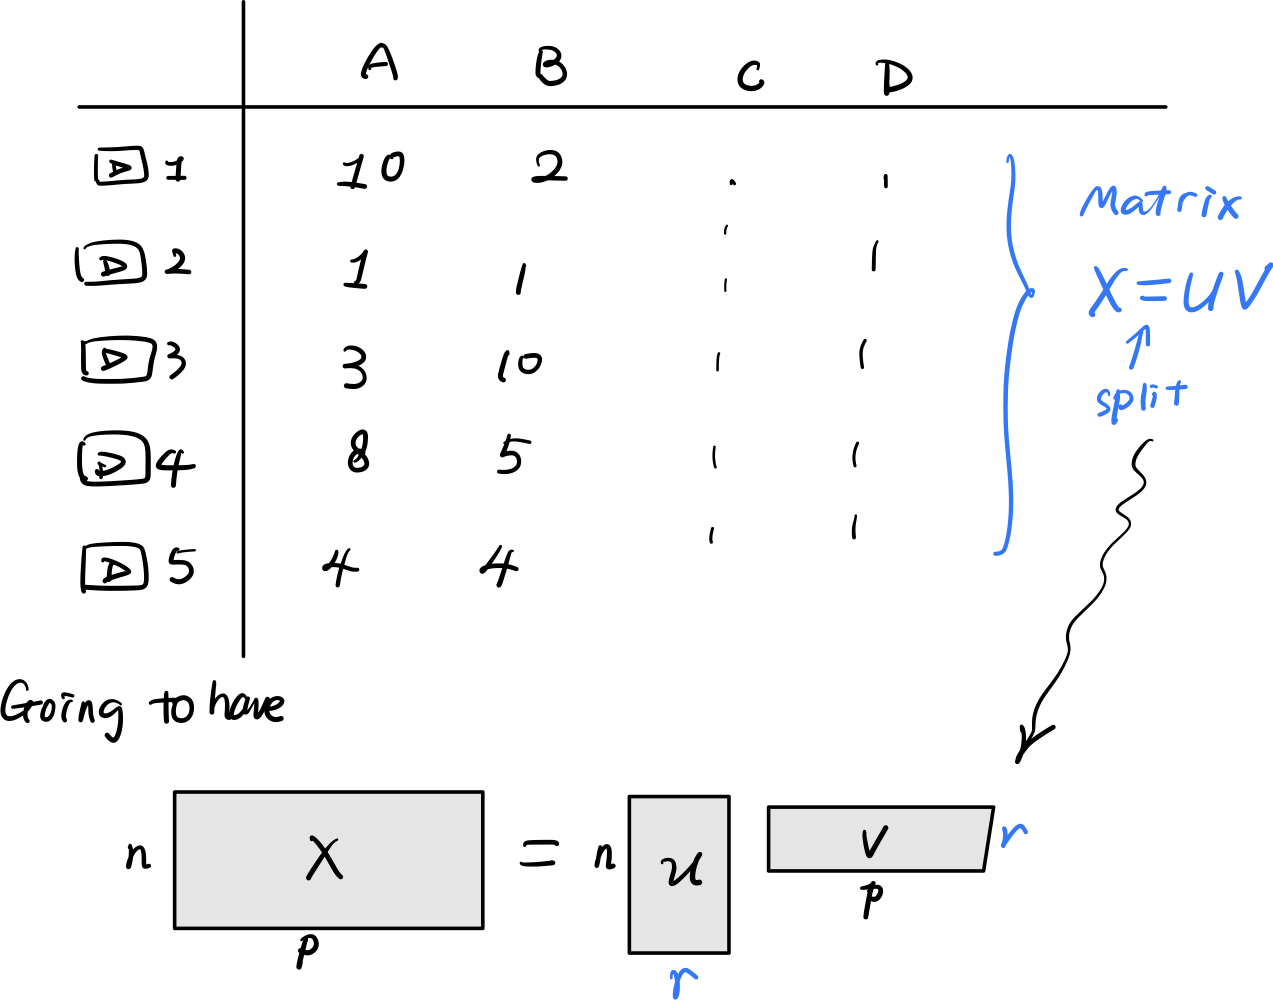 A B C D
1 10 2
2 1 1
3 3 10
4 8 5
5 4 4
Matrix
X = UV
split
Going to have
n X = n U V r
p r p